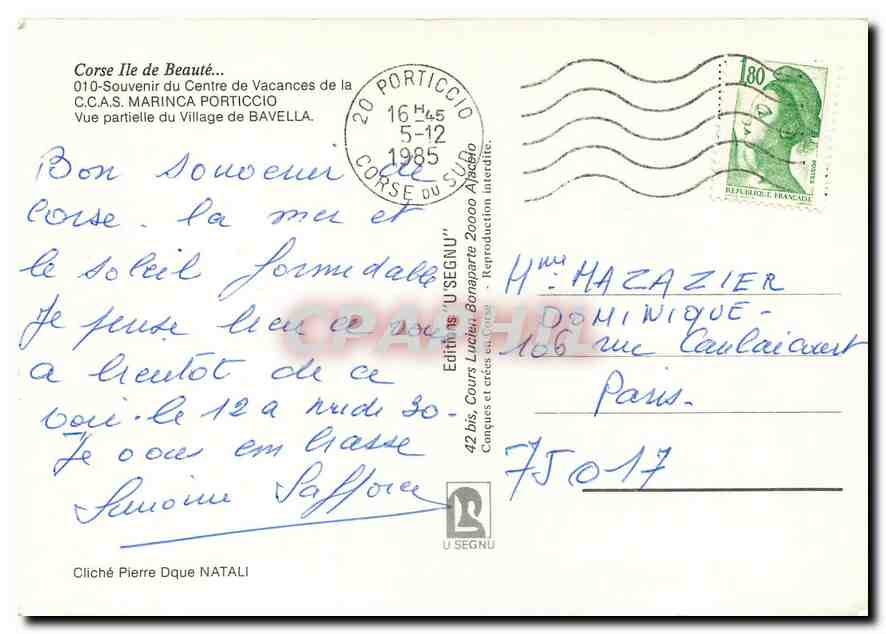 Corse Ile de Beauté...
010-Souvenir du Centre de Vacances de la
C.C.A.S. MARINCA PORTICCIO
Vue partielle du Village de BAVELLA.
20 PORTICCIO
16H45
5-12
1985
CORSE DU SUD
1,80
POSTES
REPUBLIQUE FRANÇAISE
Bon souvenir de
Corse. la mer et
le soleil formidable
Je pense bien a vous
a bientot de ce
voir. le 12 a midi 30-
Je vous embrasse
Editions "U SEGNU"
42 bis, Cours Lucien Bonaparte 20000 Ajaccio
Conçues et créées en Corse - Reproduction interdite.
Mme MAZAZIER
DOMINIQUE-
106 rue Caulaicourt
Paris-
75017
U SEGNU
Cliché Pierre Dque NATALI
CPARHEL